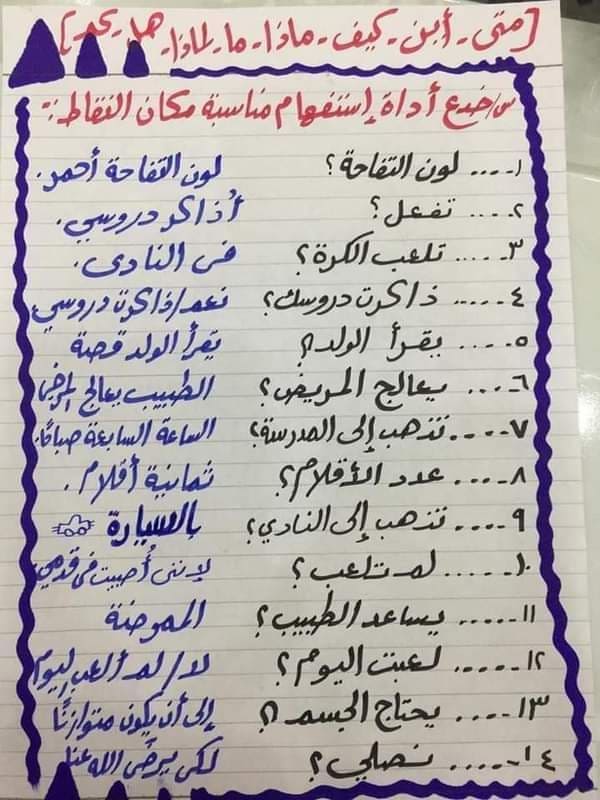 [متى - أين - كيف - ماذا - ما - لماذا - هل -
س/ضع أداة إستفهام مناسبة مكان النقاط:-
١- .... لون التفاحة؟ لون التفاحة أحمر.
٢- .... تفعل؟ أُذاكر دروسي.
٣- .... تلعب الكرة؟ فى النادى.
٤- .... ذاكرت دروسك؟ نعم/ذاكرت دروسي
٥- .... يقرأ الولد؟ يقرأ الولد قصة
٦- .... يعالج المريض؟ الطبيب يعالج المرضى
٧- .... تذهب إلى المدرسة؟ الساعة السابعة صباحًا.
٨- .... عدد الأقلام؟ ثمانية أقلام.
٩- .... تذهب إلى النادي؟ بالسيارة
١٠- .... لم تلعب؟ لإننى أُصيبت فى قدمي
١١- .... يساعد الطبيب؟ الممرضة
١٢- .... لعبت اليوم؟ لا/لم ألعب اليوم
١٣- .... يحتاج الجسم؟ إلى أن يكون متوازنًا
١٤- .... نصلي؟ لكى يرضى الله عنا